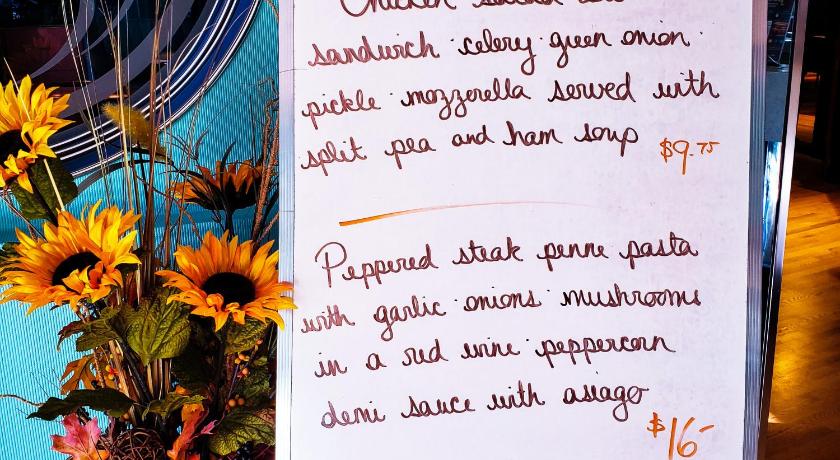 Chicken salad
sandwich · celery · green onion ·
pickle · mozzerella served with
split pea and ham soup $9.75
Peppered steak penne pasta
with garlic · onions · mushrooms
in a red wine · peppercorn
demi sauce with asiago
$16-